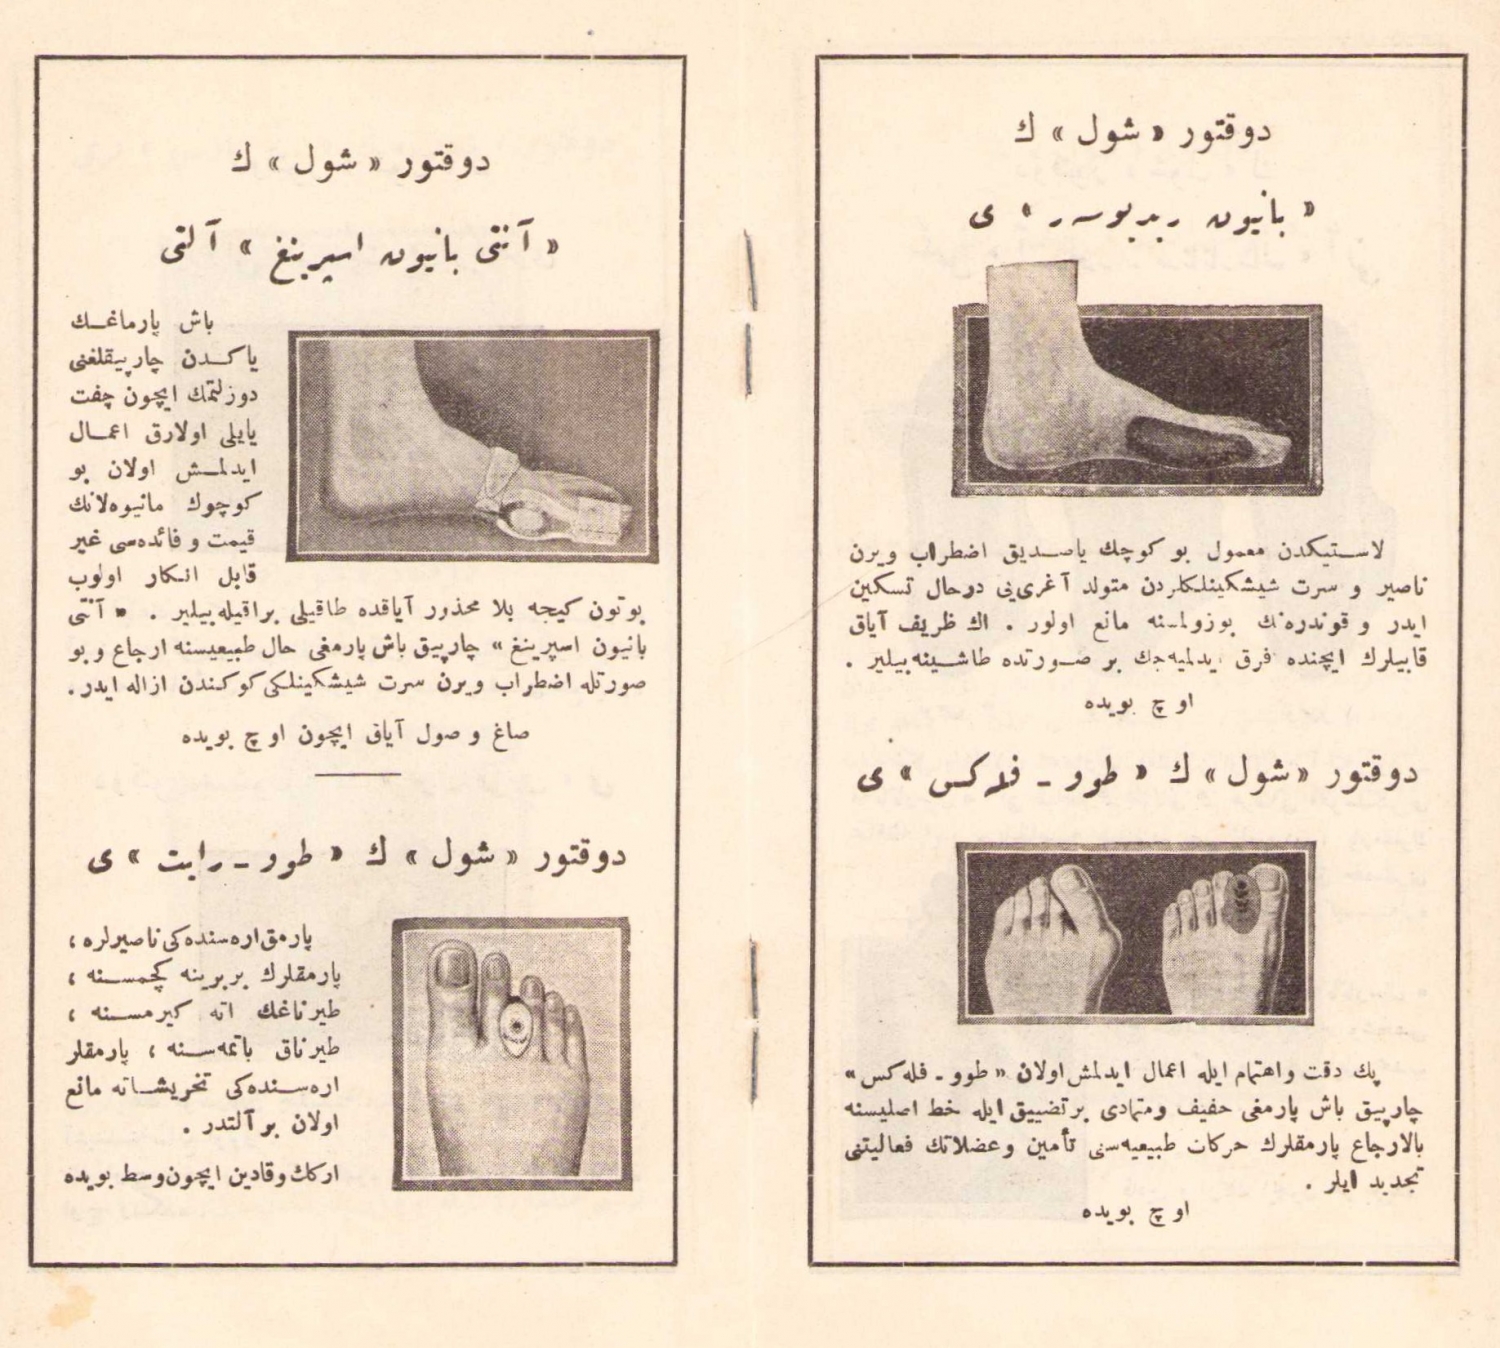 دوقتور « شول » ك
« بانیون ریدیوسەر » ی
لاستیكدن معمول بو كوچك یاصدیق اضطراب ویرن
ناصیر و سرت شیشكینلكلردن متولد آغری‌یی درحال تسكین
ایدر و قوندره‌نك بوزولمسنه مانع اولور . اك ظریف آیاق
قابیلرك ایچنده فرق ایدلمیه‌جك بر صورتده طاشینه‌بیلیر .
اوچ بویده
دوقتور « شول » ك « طوو ـ فله‌كس » ی
پك دقت واهتمام ایله اعمال ایدلمش اولان « طوو ـ فله‌كس »
چارپیق باش پارمغی خفیف ومتمادی بر تضییق ایله خط اصلیسنه
بالارجاع پارمقلرك حركات طبیعیه‌سنی تأمین وعضلاتك فعالیتنی
تجدید ایلر .
اوچ بویده
دوقتور « شول » ك
« آنتی بانیون اسپرینغ » آلتی
باش پارماغك
یاكدن چارپیقلغنی
دوزلتمك ایچون چفت
یایلی اولارق اعمال
ایدلمش اولان بو
كوچوك مانیوه‌لانك
قیمت و فائده‌سی غیر
قابل انكار اولوب
بوتون كیجه بلا محذور آیاقده طاقیلی براقیله‌بیلیر . « آنتی
بانیون اسپرینغ » چارپیق باش پارمغی حال طبیعیسنه ارجاع و بو
صورتله اضطراب ویرن سرت شیشكینلكی كوكندن ازاله ایدر .
صاغ و صول آیاق ایچون اوچ بویده
دوقتور « شول » ك « طوو ـ رایت » ی
پارمق اره‌سنده‌كی ناصیرلره ،
پارمقلرك بربرینه كچمسنه ،
طیرناغك اته كیرمسنه ،
طیرناق باتمه‌سنه ، پارمقلر
اره‌سنده‌كی تخریشاته مانع
اولان بر آلتدر .
ارك‌ك وقادین ایچون وسط بویده